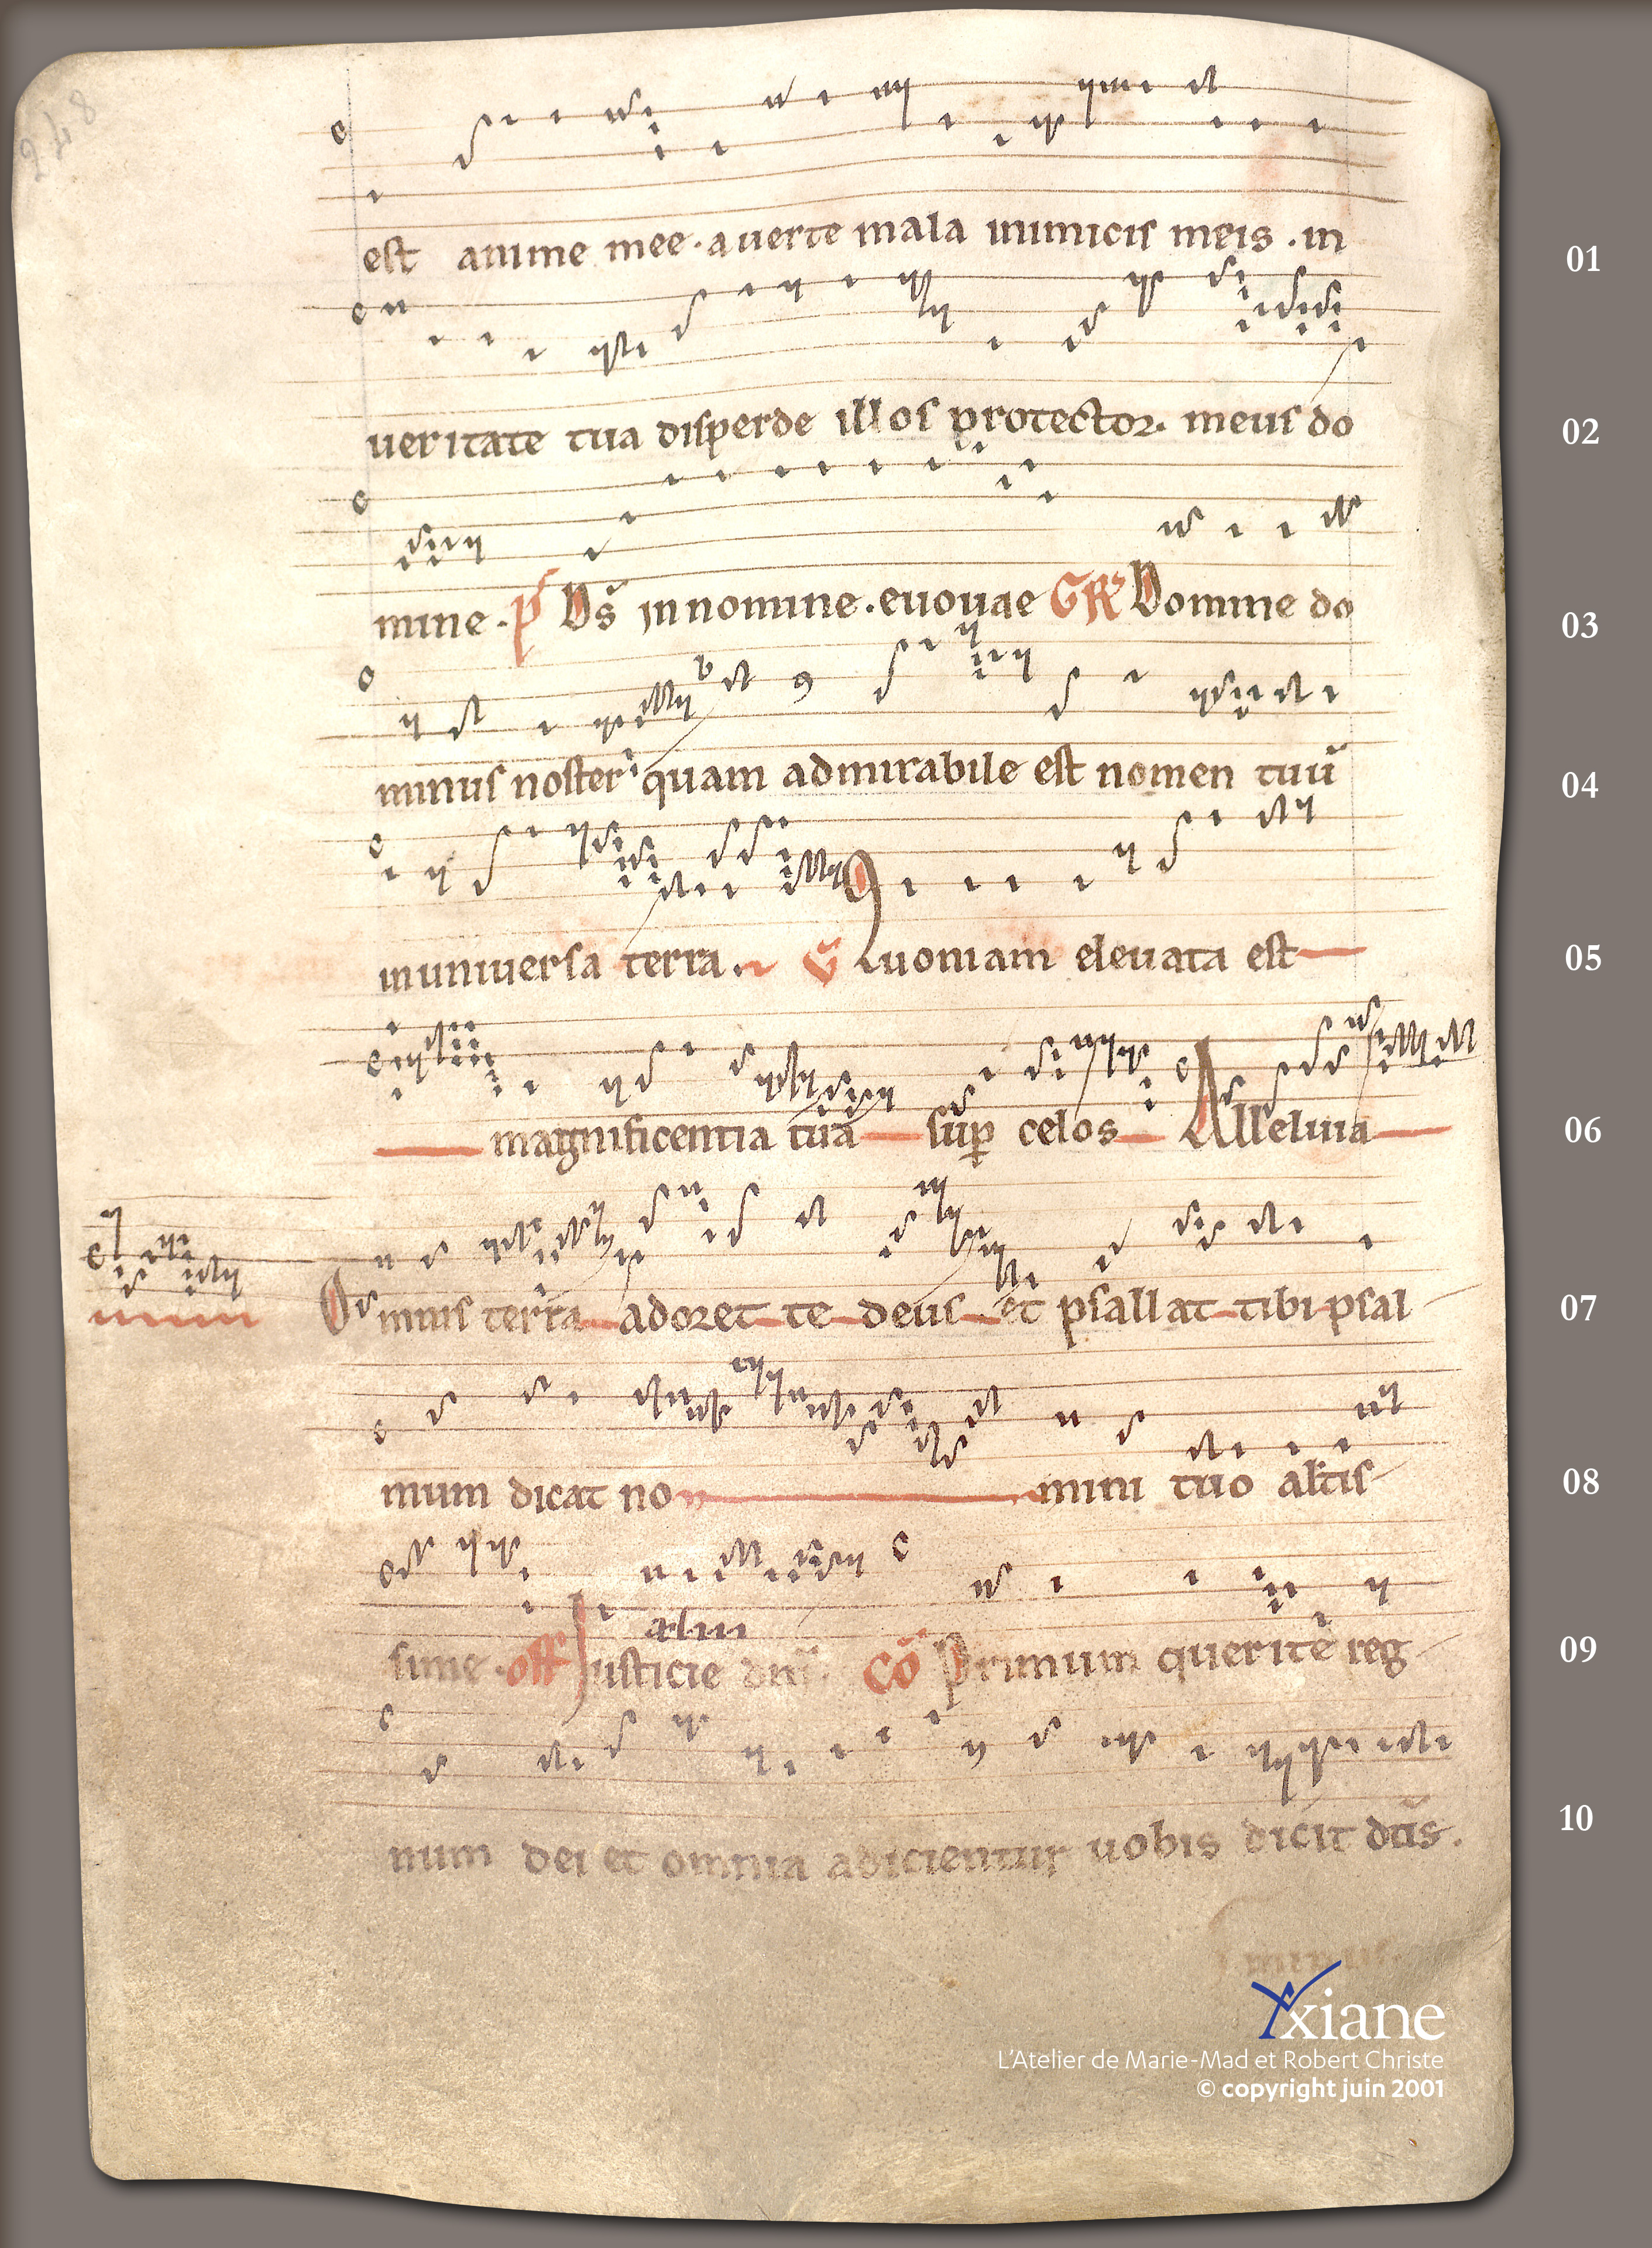 248
est anime mee · auerte mala inimicis meis · in
01
ueritate tua disperde illos protector · meus do
02
mine · p̃ Ds̃ in nomine · euouae GR Domine do
03
minus noster quam admirabile est nomen tuũ
04
in uniuersa terra · ṽ Quoniam eleuata est
05
magnificentia tua sup celos Alleluia
06
Omnis terra adoret te deus et psallat tibi psal
07
mum dicat no mini tuo altis
08
alm
sime · off Iusticie dnĩ · Cõ Primum querite reg
09
num dei et omnia adicientur uobis dicit dñs ·
10
Yxiane
L'Atelier de Marie-Mad et Robert Christe
© copyright juin 2001